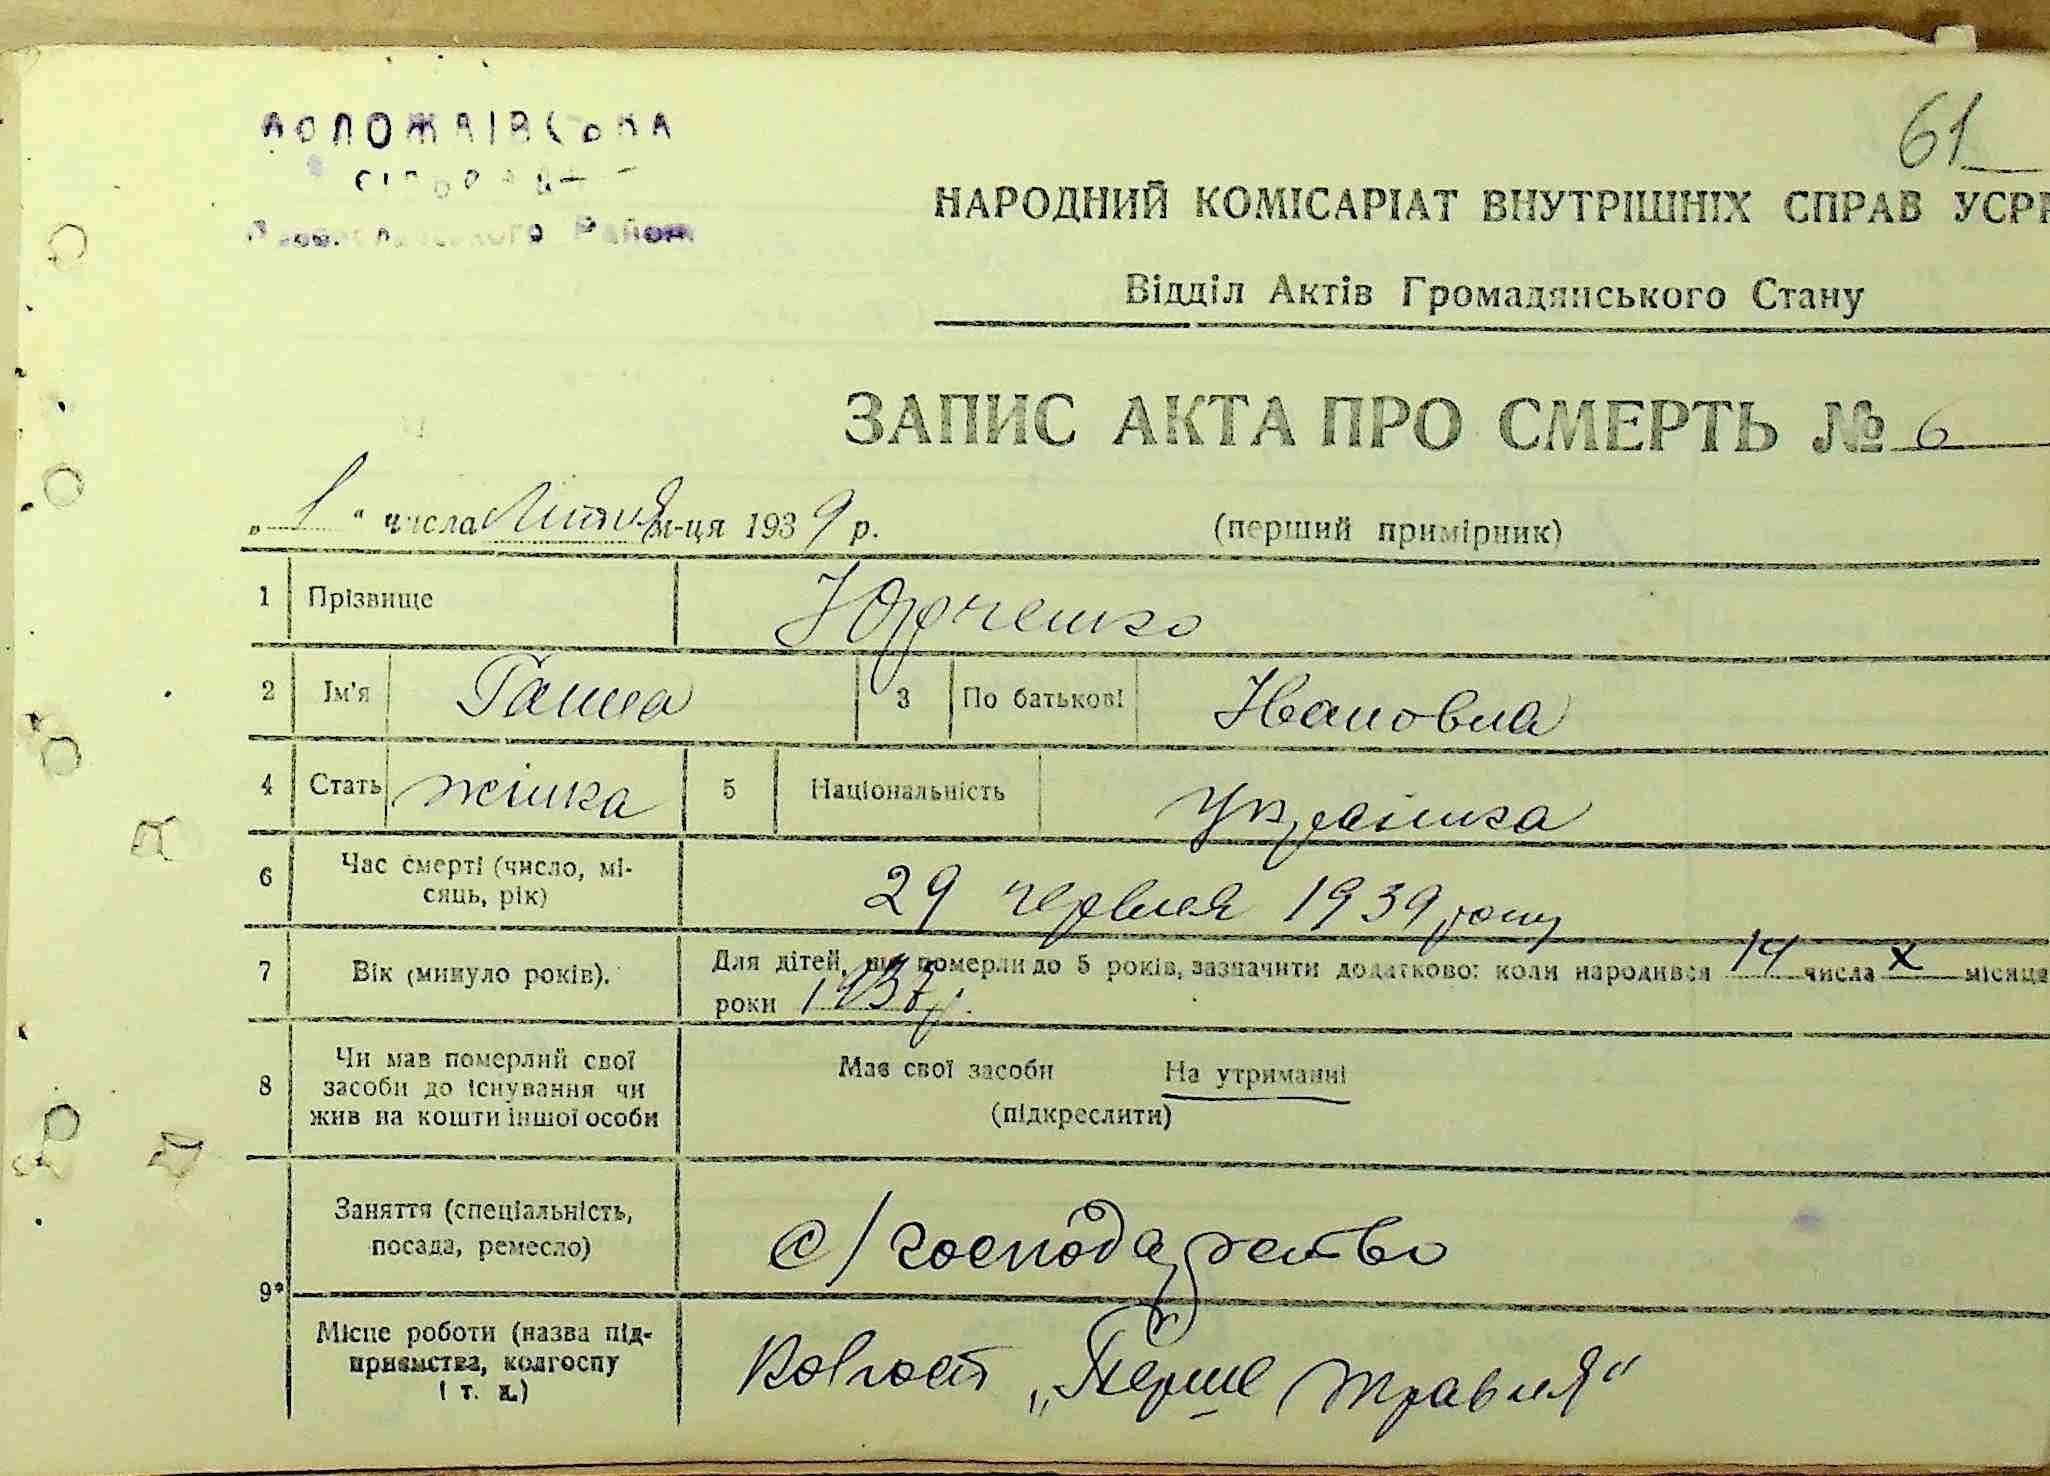 61
ВОЛОЖАІВСЬКА
Району
НАРОДНИЙ КОМІСАРІАТ ВНУТРІШНІХ СПРАВ УСРР
Відділ Актів Громадянського Стану
ЗАПИС АКТА ПРО СМЕРТЬ № 6
„1“ числа Липня м-ця 1939 р. (перший примірник)
1 Прізвище Юрченко
2 Ім'я Ганна 3 По батькові Івановна
4 Стать жінка 5 Національність Українка
6 Час смерті (число, мі-
сяць, рік) 29 червня 1939 року
7 Вік (минуло років). Для дітей, що померли до 5 років, зазначити додатково: коли народився 14 числа X місяця
роки 1937 р.
8 Чи мав померлий свої
засоби до існування чи
жив на кошти іншої особи
Має свої засоби На утриманні
(підкреслити)
9* Заняття (спеціальність,
посада, ремесло) с/господарство
Місце роботи (назва під-
приємства, колгоспу
і т. д.) Колгосп „Перше Травня“